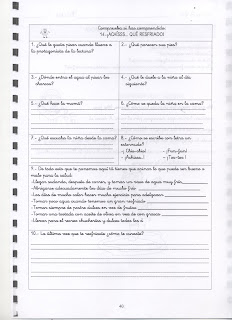 Comprueba si has comprendido:
14.-¡ACHÍSSS... QUÉ RESFRIADO!
1.- ¿Qué le gusta pisar cuando llueve a la protagonista de la lectura?
2.- ¿Qué parecen sus pies?
3.- ¿Dónde entra el agua al pisar los charcos?
4.- ¿Qué le duele a la niña al día siguiente?
5.- ¿Qué hace la mamá?
6.- ¿Cómo se queda la niña en la cama?
7.- ¿Qué escucha la niña desde la cama?
8.- ¿Cómo se escribe con letra un estornudo?
9.- De todo esto que te ponemos aquí tú tienes que opinar lo que puede ser bueno o malo para la salud:
-Llegar sudando, después de correr, y tomar un vaso de agua muy fría
-Abrigarse adecuadamente los días de mucho frío
- Los días de mucho calor hacer mucho ejercicio para adelgazar
- Tomar poca agua cuando tenemos un gran resfriado
- Tomar siempre de postre dulces en vez de frutas
- Tomar una tostada con aceite de oliva en vez de con grasas
10.- La última vez que te resfriaste ¿cómo te curaste?